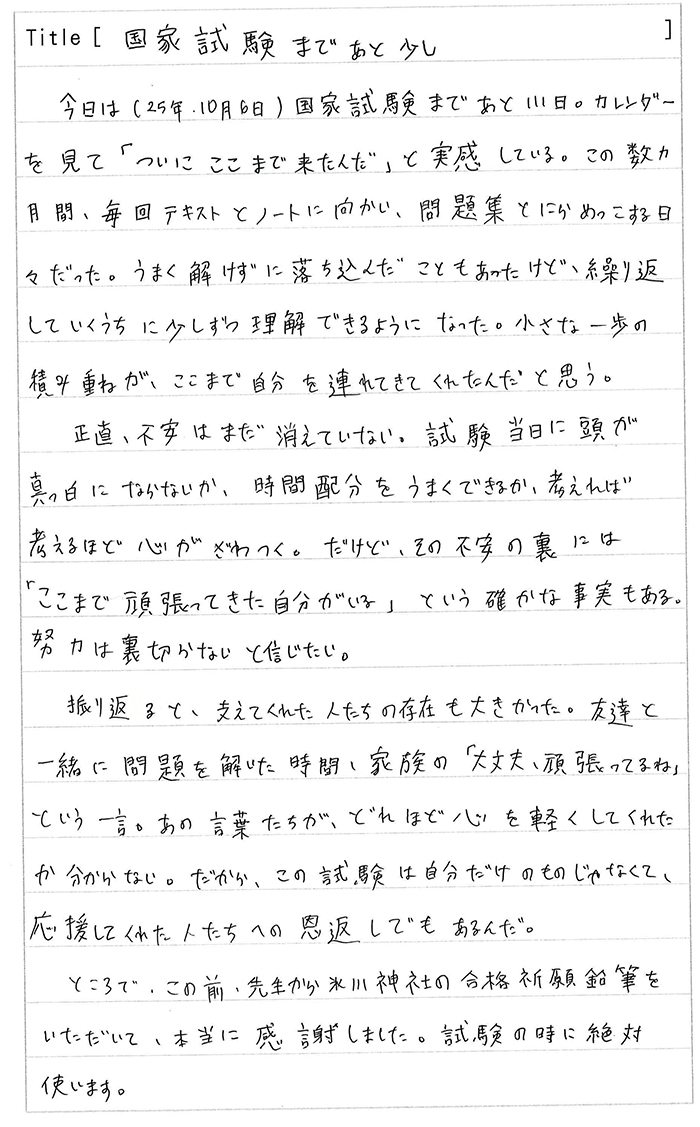 Title [ 国家試験まであと少し ]
今日は(25年.10月6日)国家試験まであと111日。カレンダー
を見て「ついにここまで来たんだ」と実感している。この数カ
月間、毎回テキストとノートに向かい、問題集とにらめっこする日
々だった。うまく解けずに落ち込んだこともあったけど、繰り返
していくうちに少しずつ理解できるようになった。小さな一歩の
積み重ねが、ここまで自分を連れてきてくれたんだと思う。
正直、不安はまだ消えていない。試験当日に頭が
真っ白にならないか、時間配分をうまくできるか、考えれば
考えるほど心がざわつく。だけど、その不安の裏には
「ここまで頑張ってきた自分がいる」という確かな事実もある。
努力は裏切らないと信じたい。
振り返ると、支えてくれた人たちの存在も大きかった。友達と
一緒に問題を解いた時間、家族の「大丈夫、頑張ってるね」
という一言。あの言葉たちが、どれほど心を軽くしてくれた
か分からない。だから、この試験は自分だけのものじゃなくて、
応援してくれた人たちへの恩返しでもあるんだ。
ところで、この前、先生から氷川神社の合格祈願鉛筆を
いただいて、本当に感謝しました。試験の時に絶対
使います。